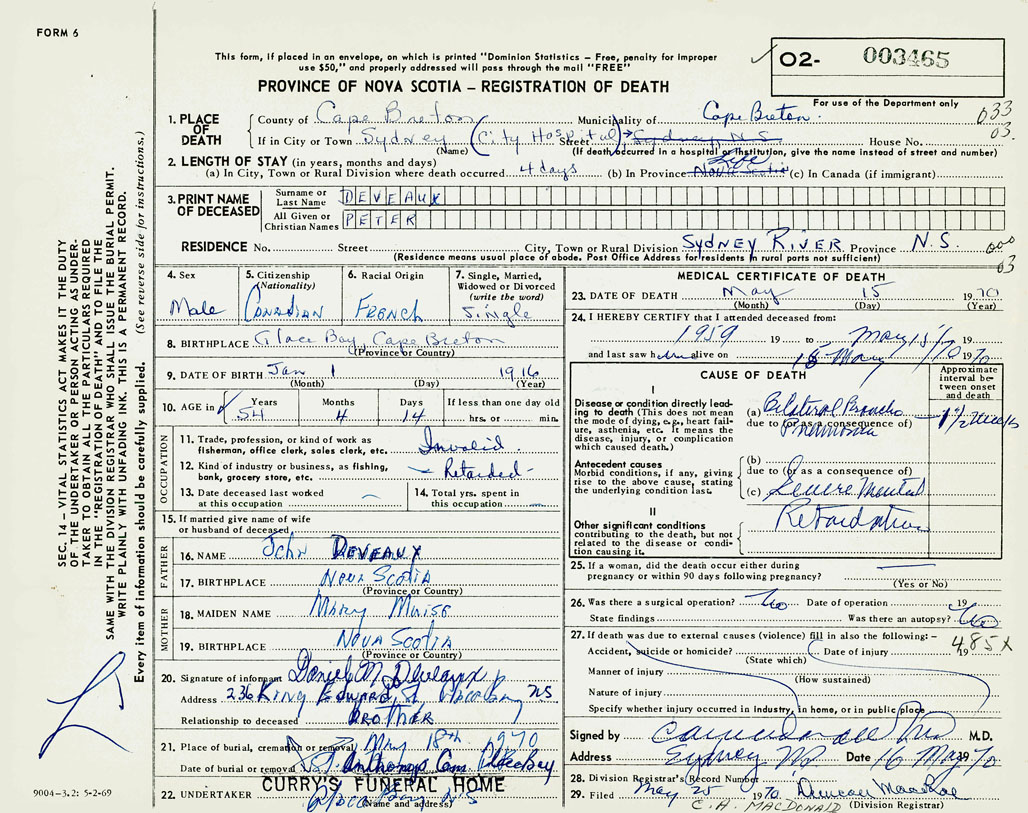 FORM 6
This form, if placed in an envelope, on which is printed "Dominion Statistics – Free, penalty for improper
use $50," and properly addressed will pass through the mail "FREE"
O2- 003465
PROVINCE OF NOVA SCOTIA – REGISTRATION OF DEATH
For use of the Department only
033
03.
1. PLACE OF DEATH
County of Cape Breton Municipality of Cape Breton.
If in City or Town Sydney (City Hospital) Street Sydney N.S. House No.
(Name) (If death occurred in a hospital or institution, give the name instead of street and number)
2. LENGTH OF STAY (in years, months and days)
(a) In City, Town or Rural Division where death occurred 4 days (b) In Province Nova Scotia Life (c) In Canada (if immigrant)
3. PRINT NAME OF DECEASED
Surname or Last Name DEVEAUX
All Given or Christian Names PETER
RESIDENCE No. Street City, Town or Rural Division SYDNEY RIVER Province N.S.
(Residence means usual place of abode. Post Office Address for residents in rural parts not sufficient)
000
03
4. Sex
Male
5. Citizenship
(Nationality)
Canadian
6. Racial Origin
FRENCH
7. Single, Married,
Widowed or Divorced
(write the word)
Single
8. BIRTHPLACE Glace Bay, Cape Breton
(Province or Country)
9. DATE OF BIRTH Jan 1 1916
(Month) (Day) (Year)
10. AGE in
Years 54
Months 4
Days 14
If less than one day old
hrs. or min.
OCCUPATION
11. Trade, profession, or kind of work as
fisherman, office clerk, sales clerk, etc. Invalid.
12. Kind of industry or business, as fishing,
bank, grocery store, etc. – Retarded –
13. Date deceased last worked
at this occupation
14. Total yrs. spent in
this occupation
15. If married give name of wife
or husband of deceased
FATHER
16. NAME John DEVEAUX
17. BIRTHPLACE NOVA SCOTIA
(Province or Country)
MOTHER
18. MAIDEN NAME Mary
19. BIRTHPLACE NOVA SCOTIA
(Province or Country)
20. Signature of informant Daniel M. Deveaux
Address 236 King Edward St. Glace Bay NS
Relationship to deceased BROTHER
21. Place of burial, cremation or removal May 18th 1970
Date of burial or removal St. Anthonys Cem Glace Bay
CURRY'S FUNERAL HOME
22. UNDERTAKER Glace Bay N.S
(Name and address)
MEDICAL CERTIFICATE OF DEATH
23. DATE OF DEATH May 15 1970
(Month) (Day) (Year)
24. I HEREBY CERTIFY that I attended deceased from:
1959 19 to May 15/70 19
and last saw him alive on 15 May 1970
CAUSE OF DEATH
Approximate
interval be-
tween onset
and death
I
Disease or condition directly lead-
ing to death (This does not mean
the mode of dying, e.g., heart fail-
ure, asthenia, etc. It means the
disease, injury, or complication
which caused death.)
(a) Bilateral Broncho
due to (or as a consequence of)
Pneumonia
1 1/2 weeks
Antecedent causes
Morbid conditions, if any, giving
rise to the above cause, stating
the underlying condition last.
(b)
due to (or as a consequence of)
(c) Severe Mental
Retardation
II
Other significant conditions
contributing to the death, but not
related to the disease or condi-
tion causing it.
25. If a woman, did the death occur either during
pregnancy or within 90 days following pregnancy?
(Yes or No)
26. Was there a surgical operation? No Date of operation 19
State findings Was there an autopsy? No
27. If death was due to external causes (violence) fill in also the following:–
485X
Accident, suicide or homicide? Date of injury 19
(State which)
Manner of injury
(How sustained)
Nature of injury
Specify whether injury occurred in industry, in home, or in public place
Signed by M.D.
Address Sydney NS Date 16 May 1970
28. Division Registrar's Record Number
29. Filed May 25 1970 Duncan MacRae
C. H. MACDONALD (Division Registrar)
SEC. 14 – VITAL STATISTICS ACT MAKES IT THE DUTY
OF THE UNDERTAKER OR PERSON ACTING AS UNDER-
TAKER TO OBTAIN ALL THE PARTICULARS REQUIRED
IN THE "REGISTRATION OF DEATH" AND TO FILE THE
SAME WITH THE DIVISION REGISTRAR WHO SHALL ISSUE THE BURIAL PERMIT.
WRITE PLAINLY WITH UNFADING INK. THIS IS A PERMANENT RECORD.
Every item of information should be carefully supplied. (See reverse side for instructions.)
9004-3.2: 5-2-69